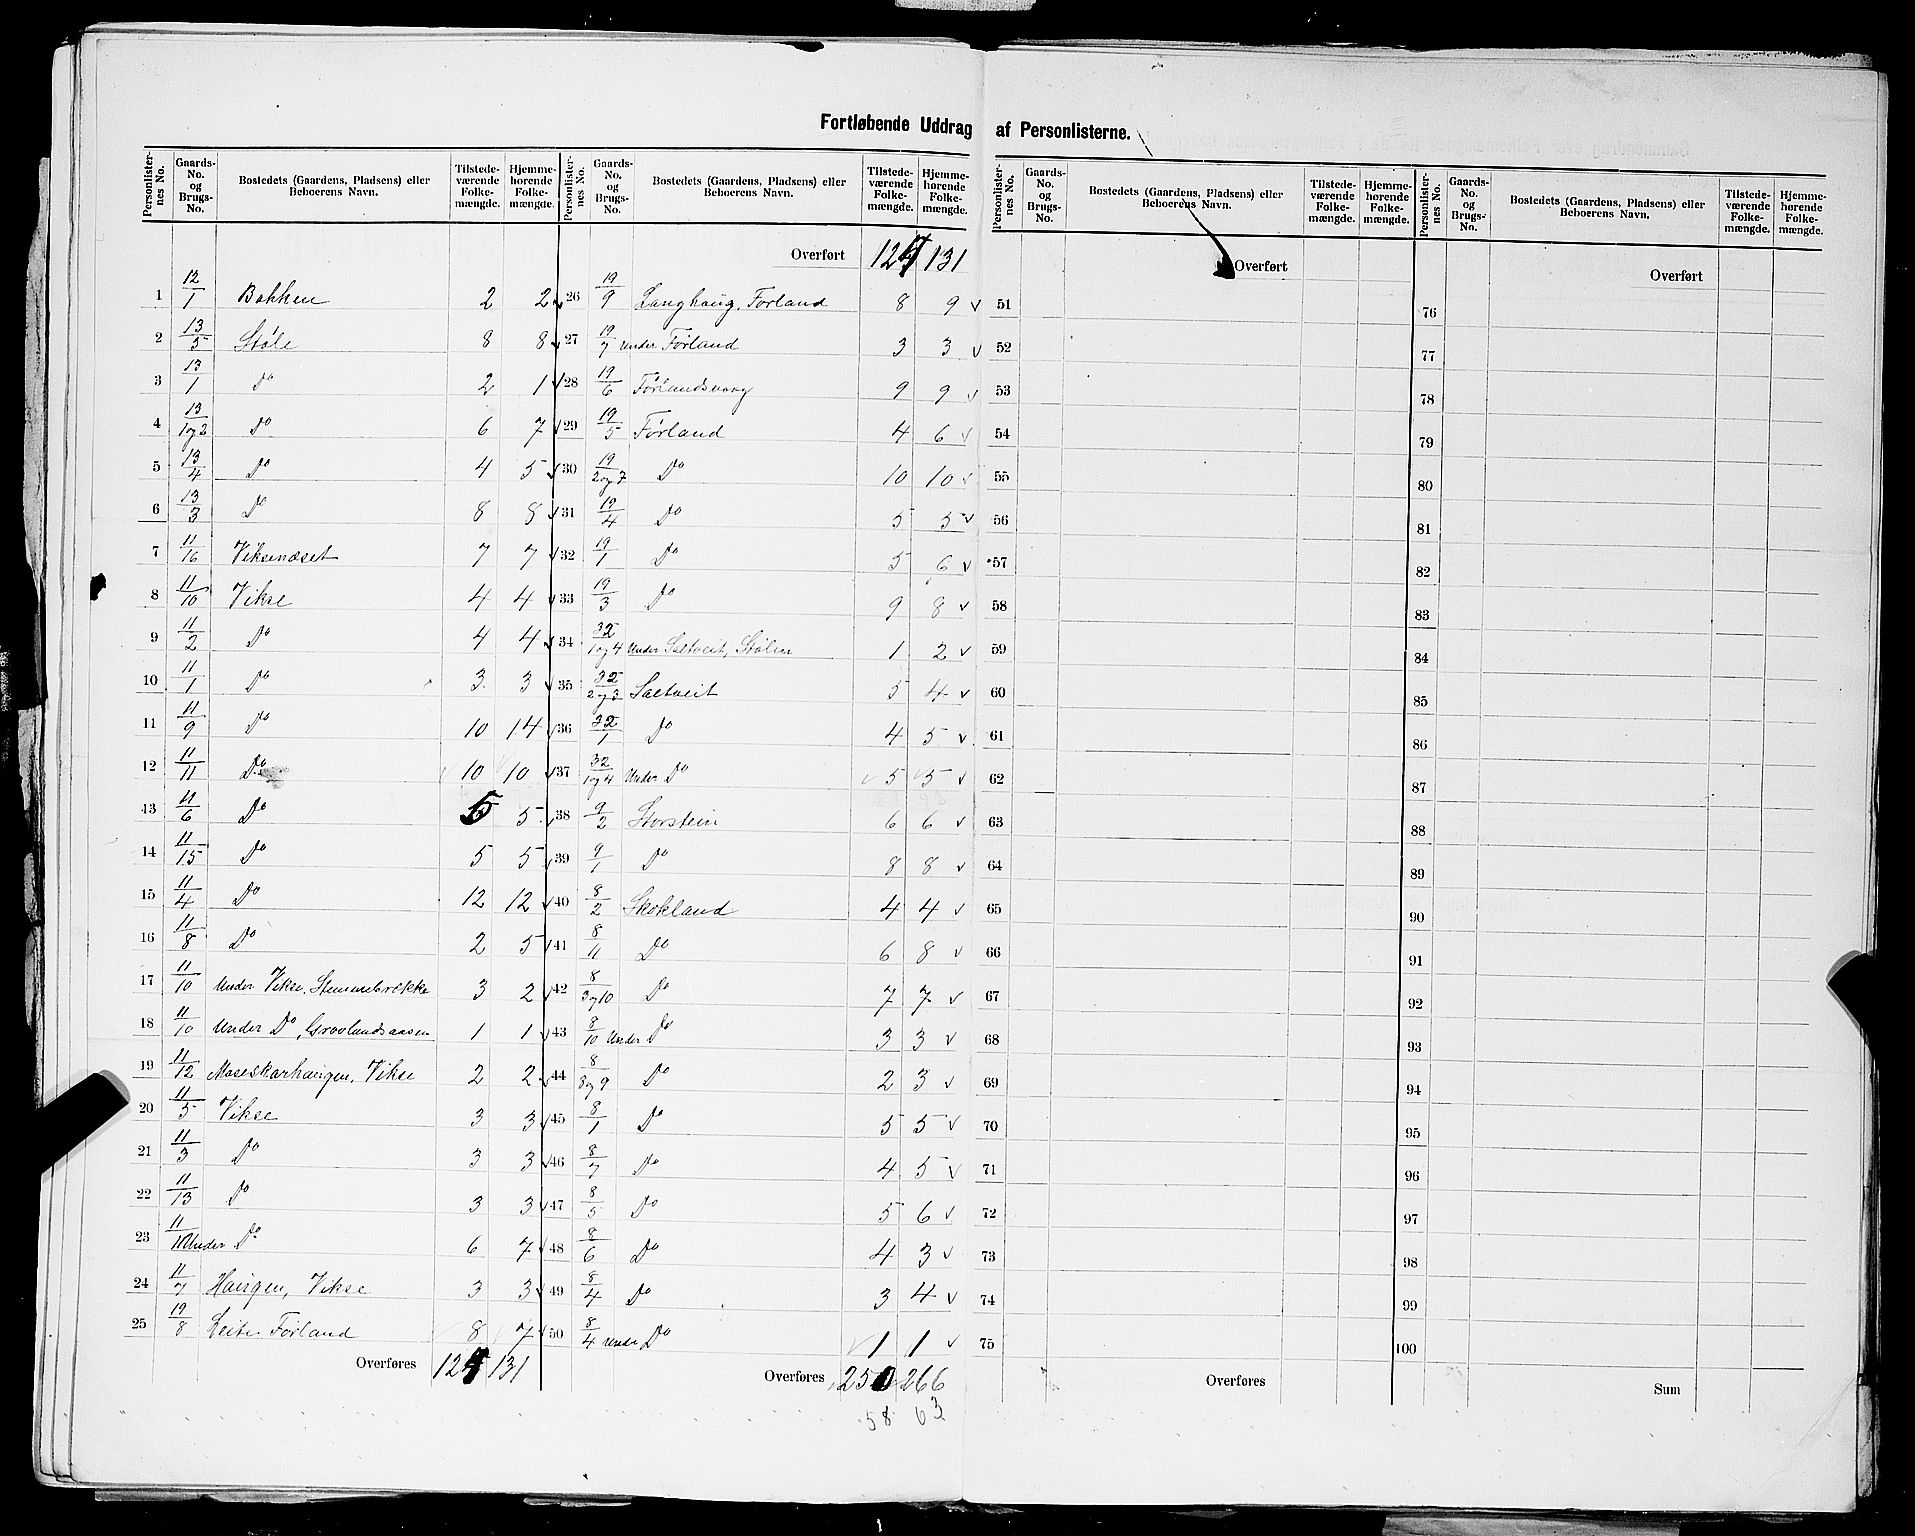 Fortløbende Uddrag af Personlisterne.
Personlister-nes No. | Gaards-No. og Brugs-No. | Bostedets (Gaardens, Pladsens) eller Beboerens Navn. | Tilstede-værende Folke-mængde. | Hjemme-hørende Folke-mængde.
1 12/1 Bakken 2 2
2 13/5 Støle 8 8
3 13/1 Do 2 1
4 13/1og2 Do 6 7
5 13/4 Do 4 5
6 13/3 Do 8 8
7 11/16 Viksenæset 7 7
8 11/10 Vikse 4 4
9 11/2 Do 4 4
10 11/1 Do 3 3
11 11/9 Do 10 14
12 11/11 Do 10 10
13 11/6 Do 5 5
14 11/15 Do 5 5
15 11/4 Do 12 12
16 11/8 Do 2 5
17 11/10 Under Vikse, Stemmebrække 3 2
18 11/10 Under Do, Groolandsaasen 1 1
19 11/12 Maseskarhaugen, Vikse 2 2
20 11/5 Vikse 3 3
21 11/3 Do 3 3
22 11/13 Do 3 3
23 11/10 Under Do 6 7
24 11/7 Haugen, Vikse 3 3
25 19/8 Leite Førland 8 7
Overføres 124 131
Personlister-nes No. | Gaards-No. og Brugs-No. | Bostedets (Gaardens, Pladsens) eller Beboerens Navn. | Tilstede-værende Folke-mængde. | Hjemme-hørende Folke-mængde.
Overført 124 131
26 19/9 Langhaug, Førland 8 9
27 19/7 Under Førland 3 3
28 19/6 Førlandsvaag 9 9
29 19/5 Førland 4 6
30 19/2og7 Do 10 10
31 19/4 Do 5 5
32 19/1 Do 5 6
33 19/3 Do 9 8
34 32/1og4 Under Saltveit, Stølen 1 2
35 32/2og3 Saltveit 5 4
36 32/1 Do 4 5
37 32/1og4 Under Do 5 5
38 9/2 Storstein 6 6
39 9/1 Do 8 8
40 8/2 Skokland 4 4
41 8/11 Do 6 8
42 8/3og10 Do 7 7
43 8/10 Under Do 3 3
44 8/8og9 Do 2 3
45 8/1 Do 5 5
46 8/7 Do 4 5
47 8/5 Do 5 6
48 8/6 Do 4 3
49 8/4 Do 3 4
50 8/4 Under Do 1 1
Overføres 250 266
58 63
Personlister-nes No. | Gaards-No. og Brugs-No. | Bostedets (Gaardens, Pladsens) eller Beboerens Navn. | Tilstede-værende Folke-mængde. | Hjemme-hørende Folke-mængde.
Overført
51
52
53
54
55
56
57
58
59
60
61
62
63
64
65
66
67
68
69
70
71
72
73
74
75
Overføres
Personlister-nes No. | Gaards-No. og Brugs-No. | Bostedets (Gaardens, Pladsens) eller Beboerens Navn. | Tilstede-værende Folke-mængde. | Hjemme-hørende Folke-mængde.
Overført
76
77
78
79
80
81
82
83
84
85
86
87
88
89
90
91
92
93
94
95
96
97
98
99
100
Sum